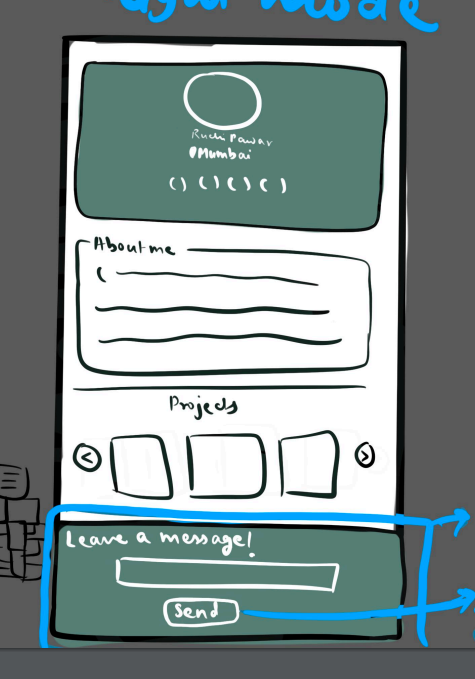 mode
Ruchi Pawar
Mumbai
About me
Projects
Leave a message!
Send